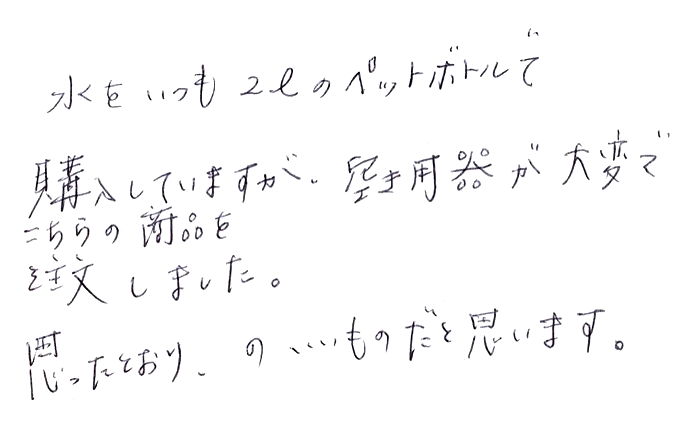 水をいつも2ℓのペットボトルで
購入していますが、空き用器が大変で
こちらの商品を
注文しました。
思ったとおり、のいいものだと思います。